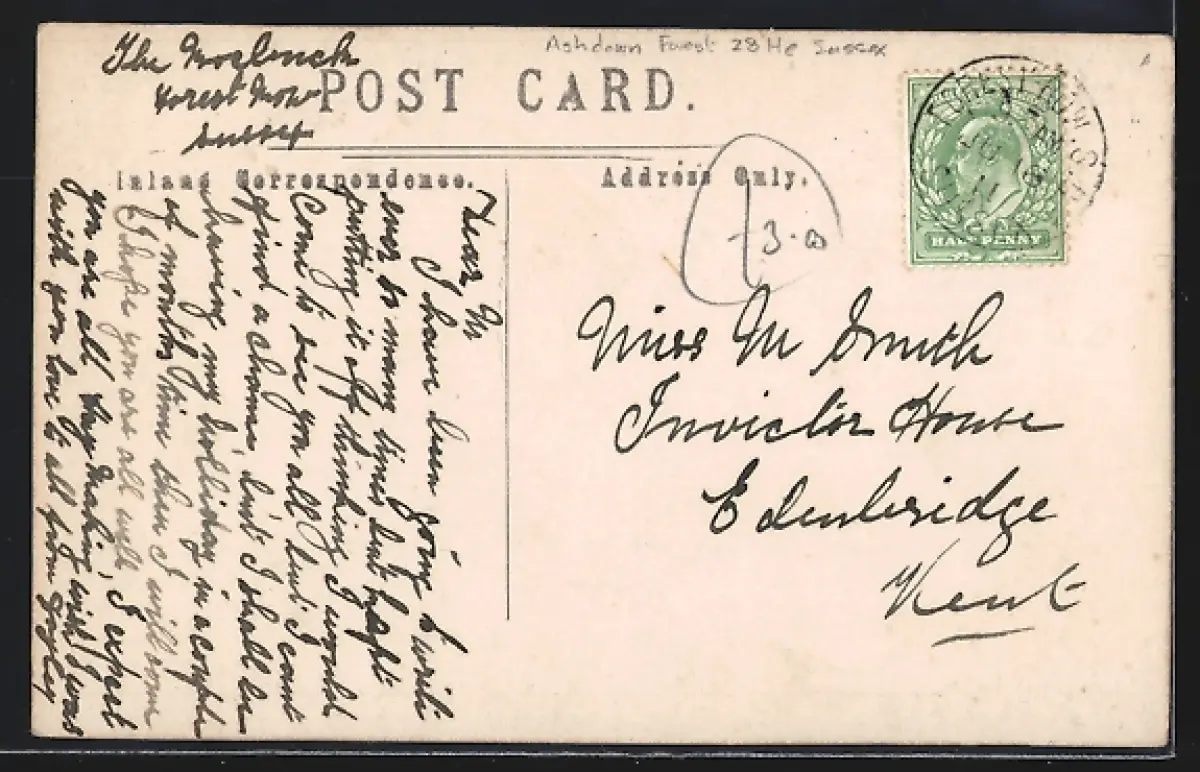 Ashdown Forest 28 He Sussex
The
Forest Row
Sussex
POST CARD.
Inland Correspondence.
Address Only.
HALF PENNY
FOREST ROW
3.0
Miss M Smith
Invicta House
Edenbridge
Kent
Dear M
I have been going to write
ever so many times but kept
putting it off thinking I would
come to see you all but I cant
find a chance, but I shall be
having my holliday in a couple
of months time then I will come
I hope you are all well
you are all hay making, I expect
with you love to all from
wish I was